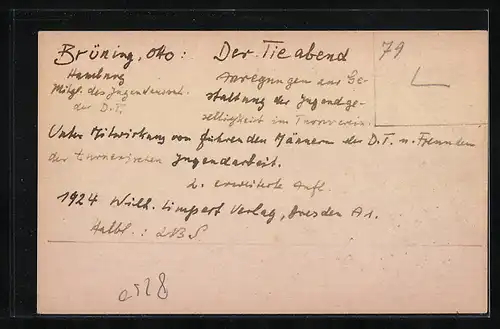 Brüning, Otto: Der Tie abend
Hamburg
Mitgl. des Jugendaussch.
der D.T.
Anregungen zur Ge-
staltung der Jugendge-
selligkeit im Turnverein.
79
Unter Mitwirkung von führenden Männern der D.T. u. Freunden
der turnerischen Jugendarbeit.
2. erweiterte Aufl.
1924 Wilh. Limpert Verlag, Dresden A1.
Halbl.: 213 S.